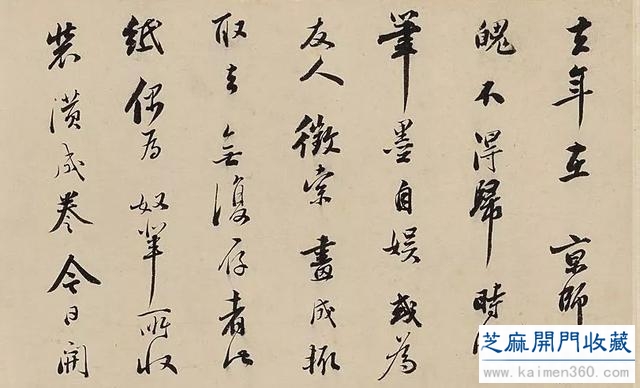 去年在京師
愧不得歸時
筆墨自娱或為
友人徵索畫成輒
取去無復存者此
紙偶為奴輩所收
裝潢成卷今日開
芝麻開門收藏
www.kaimen360.com